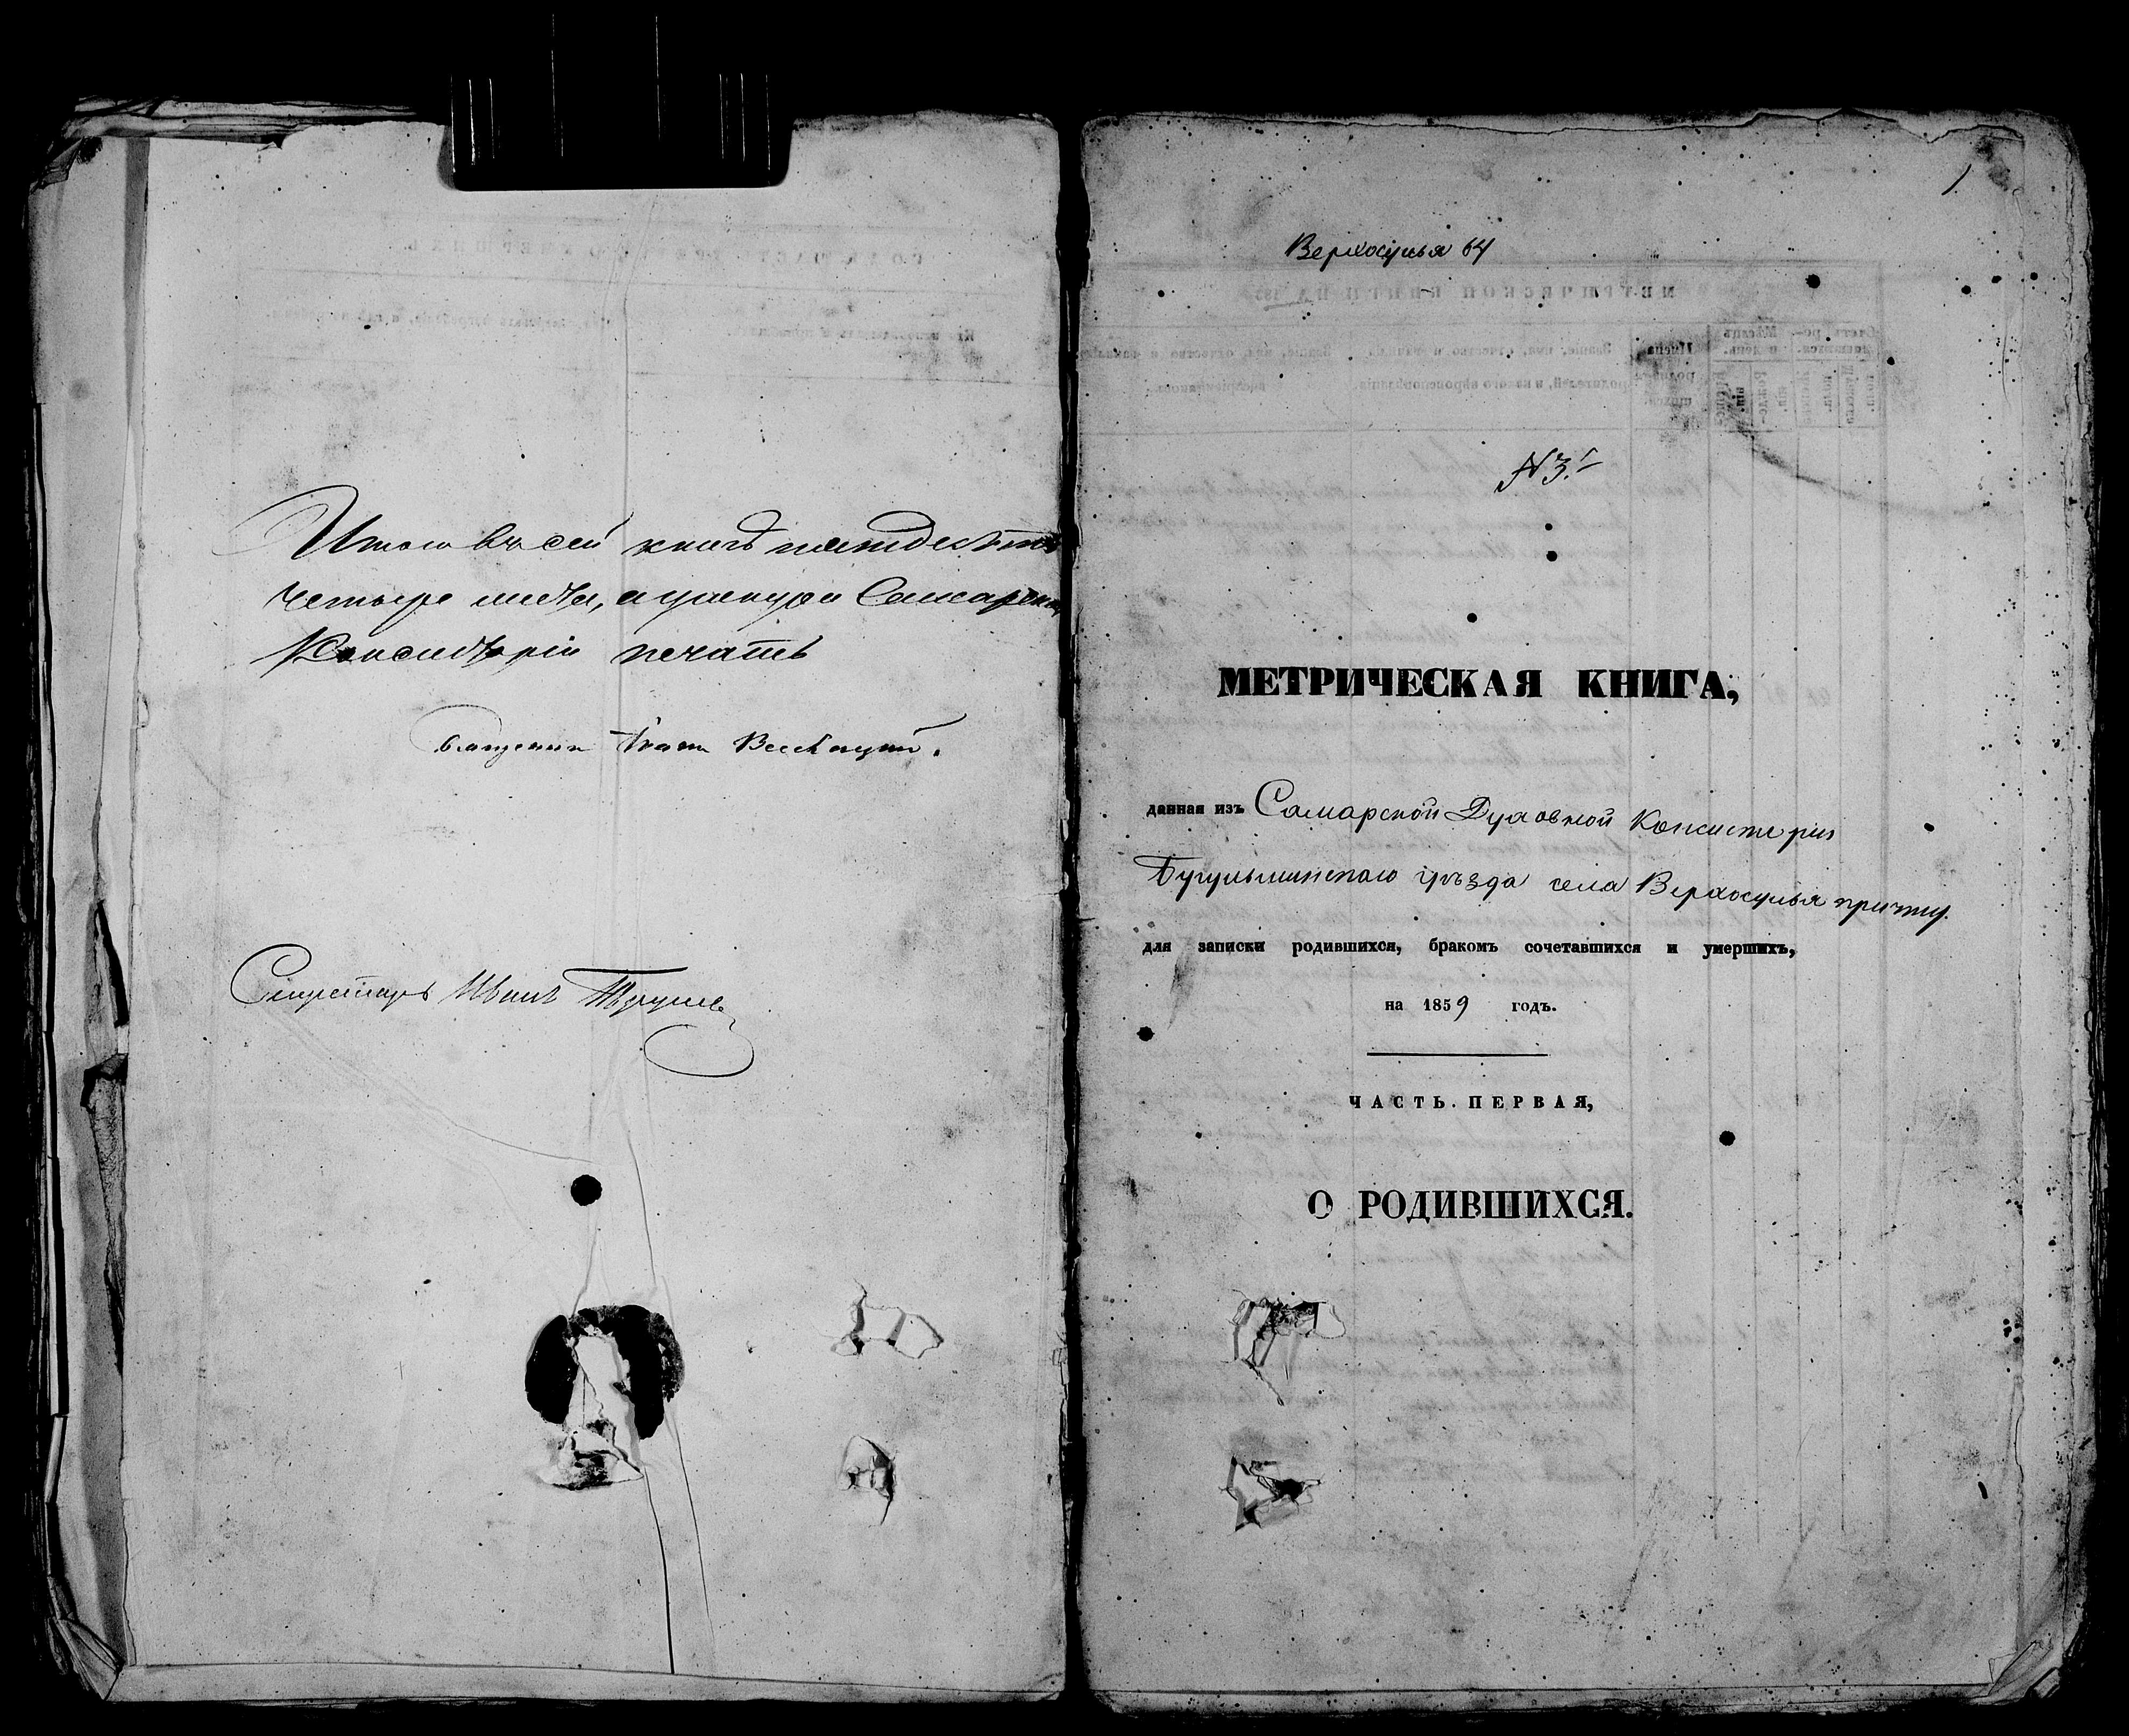 Итого въ сей книгѣ пятьдесятъ
четыре листа, и у шнура Самарской
Консисторіи печать
Священникъ Іоаннъ
Секретарь Иванъ
1
Верхосулья 64
N 3.
МЕТРИЧЕСКАЯ КНИГА,
данная изъ Самарской Духовной Консисторіи
Бугульминскаго уѣзда села Верхосулья причту.
для записки родившихся, бракомъ сочетавшихся и умершихъ,
на 1859 годъ.
ЧАСТЬ ПЕРВАЯ,
О РОДИВШИХСЯ.